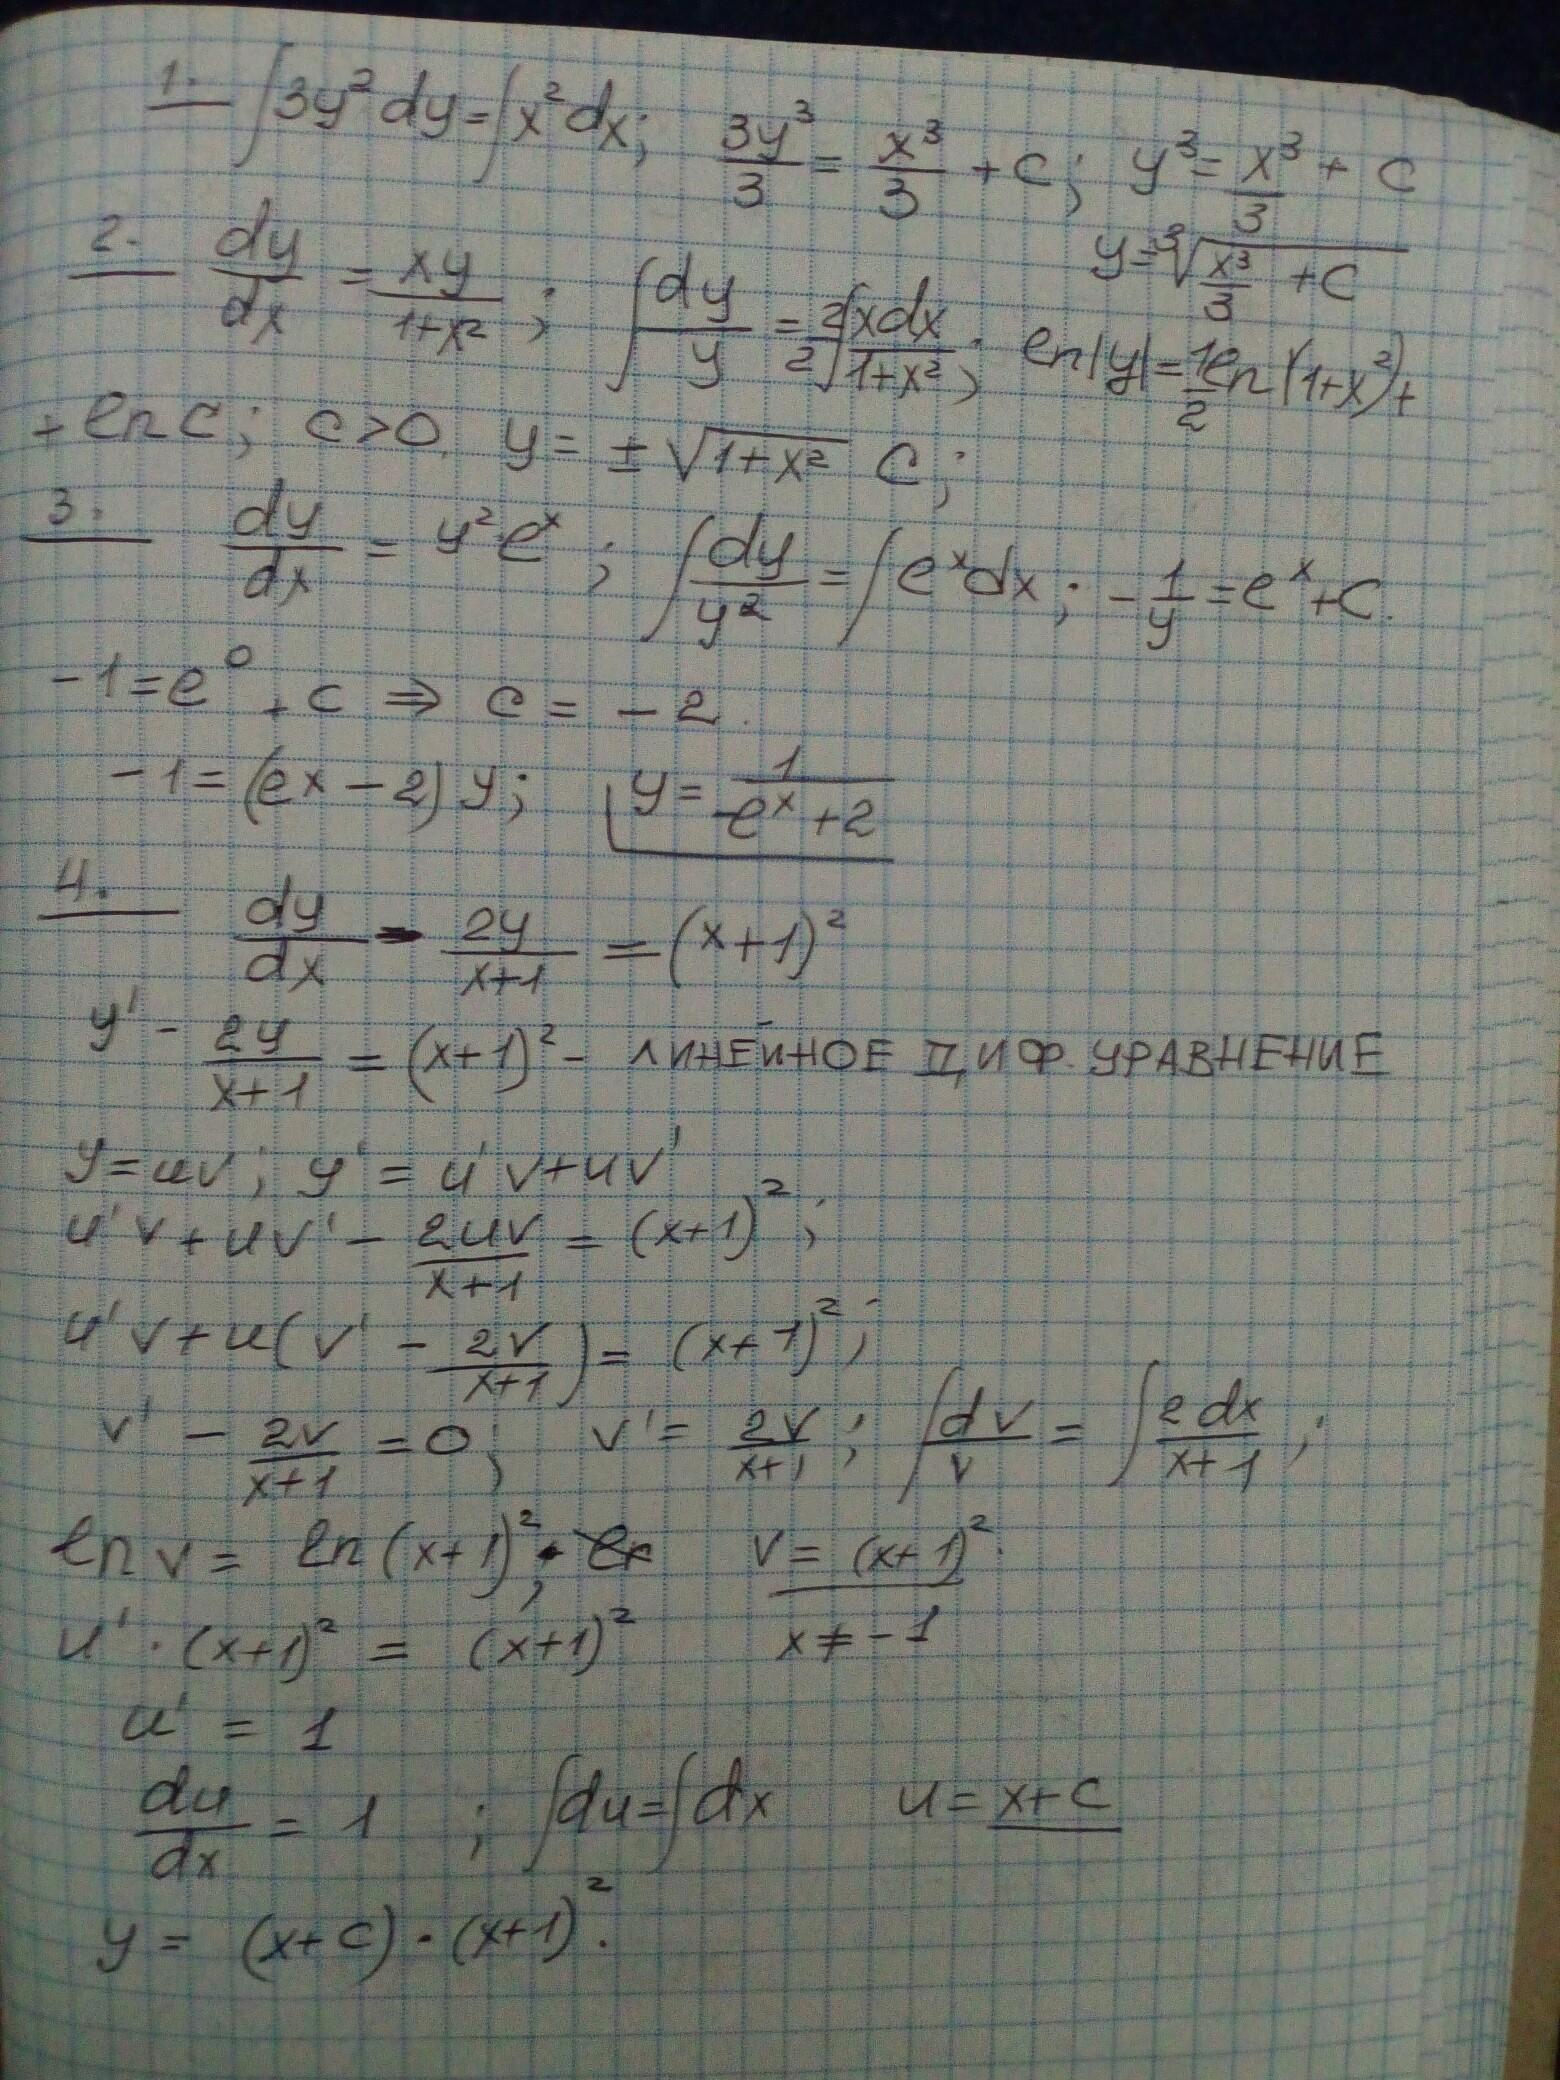 1. ∫3y²dy=∫x²dx; 3y³/3 = x³/3 + c; y³= x³/3 + c
y=³√(x³/3 + c)
2. dy/dx = xy/(1+x²); ∫dy/y = 2/2∫xdx/(1+x²); ln|y|=1/2 ln(1+x²)+
+ ln c; c>0. y= ±√(1+x²) c;
3. dy/dx = y²·eˣ; ∫dy/y² = ∫eˣdx; -1/y = eˣ+c.
-1=e⁰+c ⇒ c = -2.
-1=(eˣ-2)y; y= 1/(-eˣ+2)
4. dy/dx - 2y/(x+1) = (x+1)²
y' - 2y/(x+1) = (x+1)² - ЛИНЕЙНОЕ ДИФ. УРАВНЕНИЕ
y=uv; y' = u'v+uv'
u'v+uv' - 2uv/(x+1) = (x+1)²;
u'v+u(v' - 2v/(x+1)) = (x+1)²;
v' - 2v/(x+1) = 0; v' = 2v/(x+1); ∫dv/v = ∫2dx/(x+1);
ln v = ln(x+1)²; v= (x+1)².
u'·(x+1)² = (x+1)² x≠-1
u' = 1
du/dx = 1; ∫du=∫dx u=x+c
y = (x+c)·(x+1)².